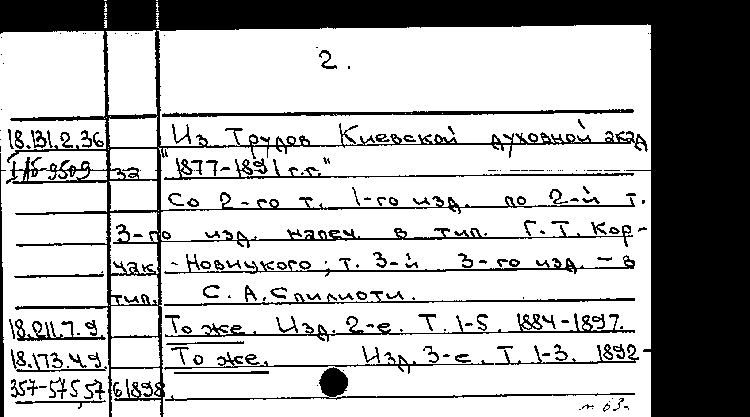 2.
18.131.2.36 "Из Трудов Киевской духовной акад
1Аб-9509 за 1877-1891 г.г."
Со 2-го т. 1-го изд. по 2-й т.
3-го изд. напеч. в тип. Г.Т. Кор-
чак-Новицкого; т. 3-й 3-го изд. - в
тип. С.А. Спилиоти.
18.211.7.9. То же. Изд. 2-е. Т. 1-5. 1884-1897.
18.173.4.9. То же. Изд. 3-е. Т. 1-3. 1892-
1898.